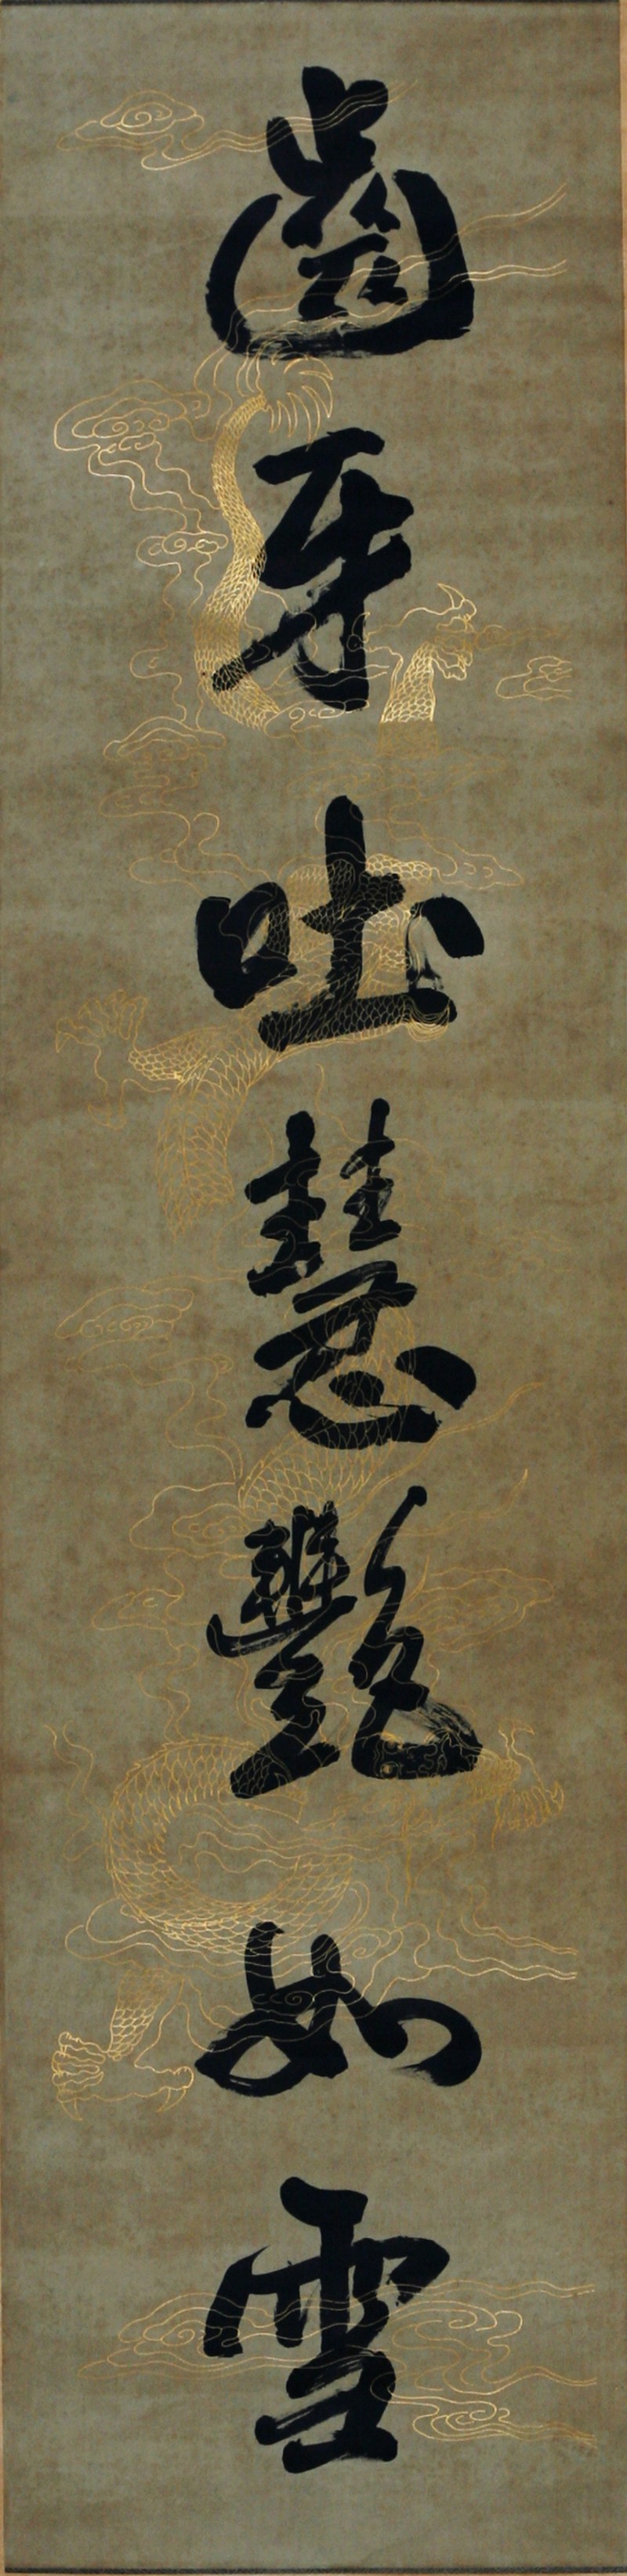 齒牙吐慧艷如雪